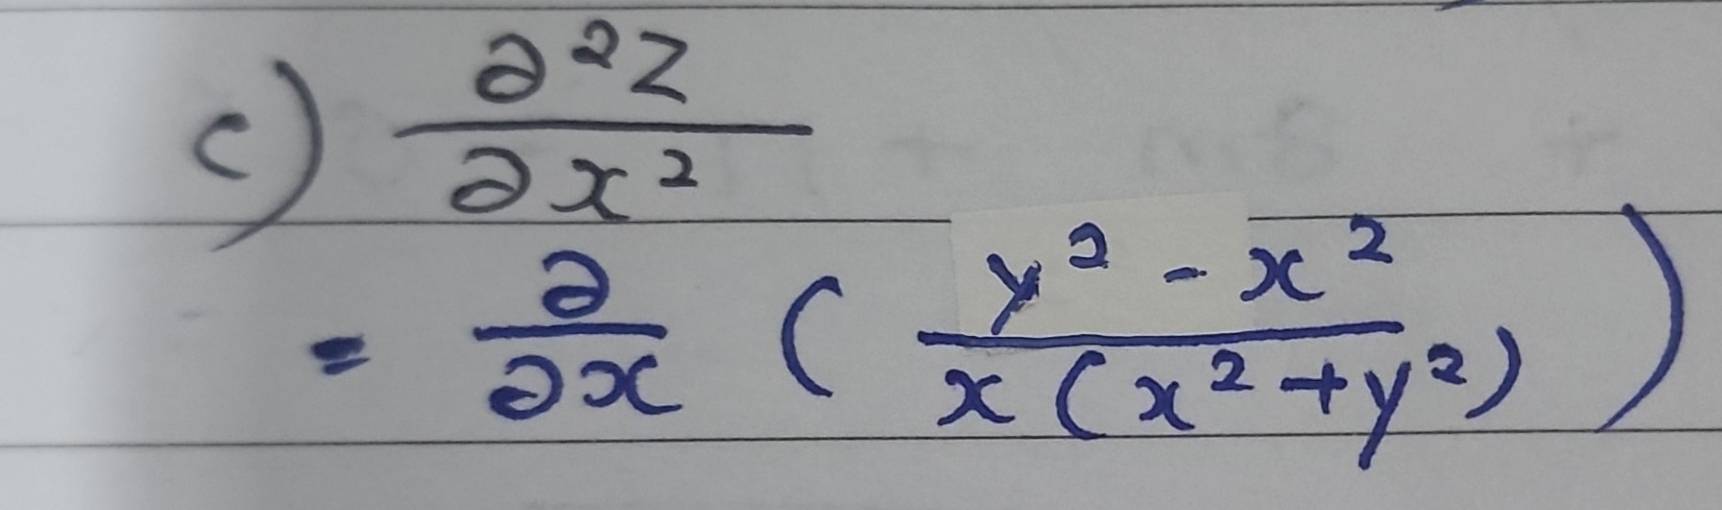 c) ∂²z / ∂x²
= ∂/∂x ( (y² - x²) / (x(x² + y²)) )